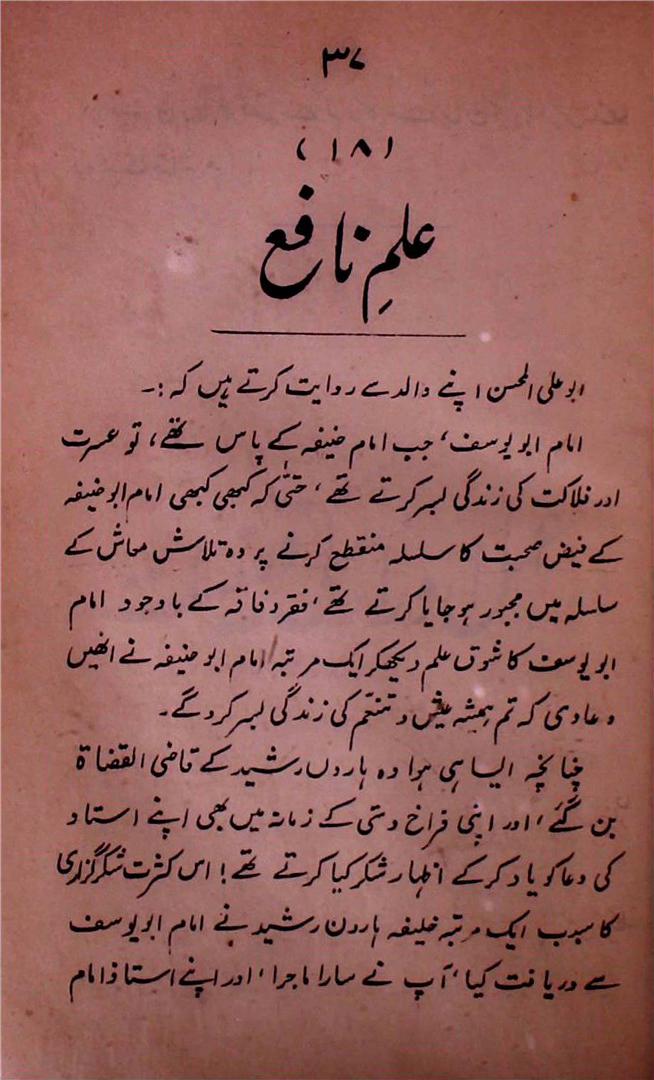 ۳۷
(۱۸)
علمِ نافع
ابو علی المحسن اپنے والد سے روایت کرتے ہیں کہ :۔
امام ابو یوسف، جب امام حنیفہ کے پاس تھے، تو عسرت
اور فلاکت کی زندگی بسر کرتے تھے، حتّٰی کہ کبھی کبھی امام ابو حنیفہ
کے فیض صحبت کا سلسلہ منقطع کرنے پر وہ تلاش معاش کے
سلسلہ میں مجبور ہو جایا کرتے تھے، فقر و فاقہ کے باوجود امام
ابو یوسف کا شوق علم دیکھکر ایک مرتبہ امام ابو حنیفہ نے انھیں
دعا دی کہ تم ہمیشہ عیش و تنعّم کی زندگی بسر کرو گے۔
چنانچہ ایسا ہی ہوا وہ ہاروں رشید کے قاضی القضاۃ
بن گئے، اور اپنی فراخ دستی کے زمانہ میں بھی اپنے استاد
کی دعا کو یاد کر کے اظہار شکر کیا کرتے تھے! اس کثرت شکرگزاری
کا سبب ایک مرتبہ خلیفہ ہارون رشید نے امام ابو یوسف
سے دریافت کیا، آپ نے سارا ماجرا، اور اپنے استاذ امام